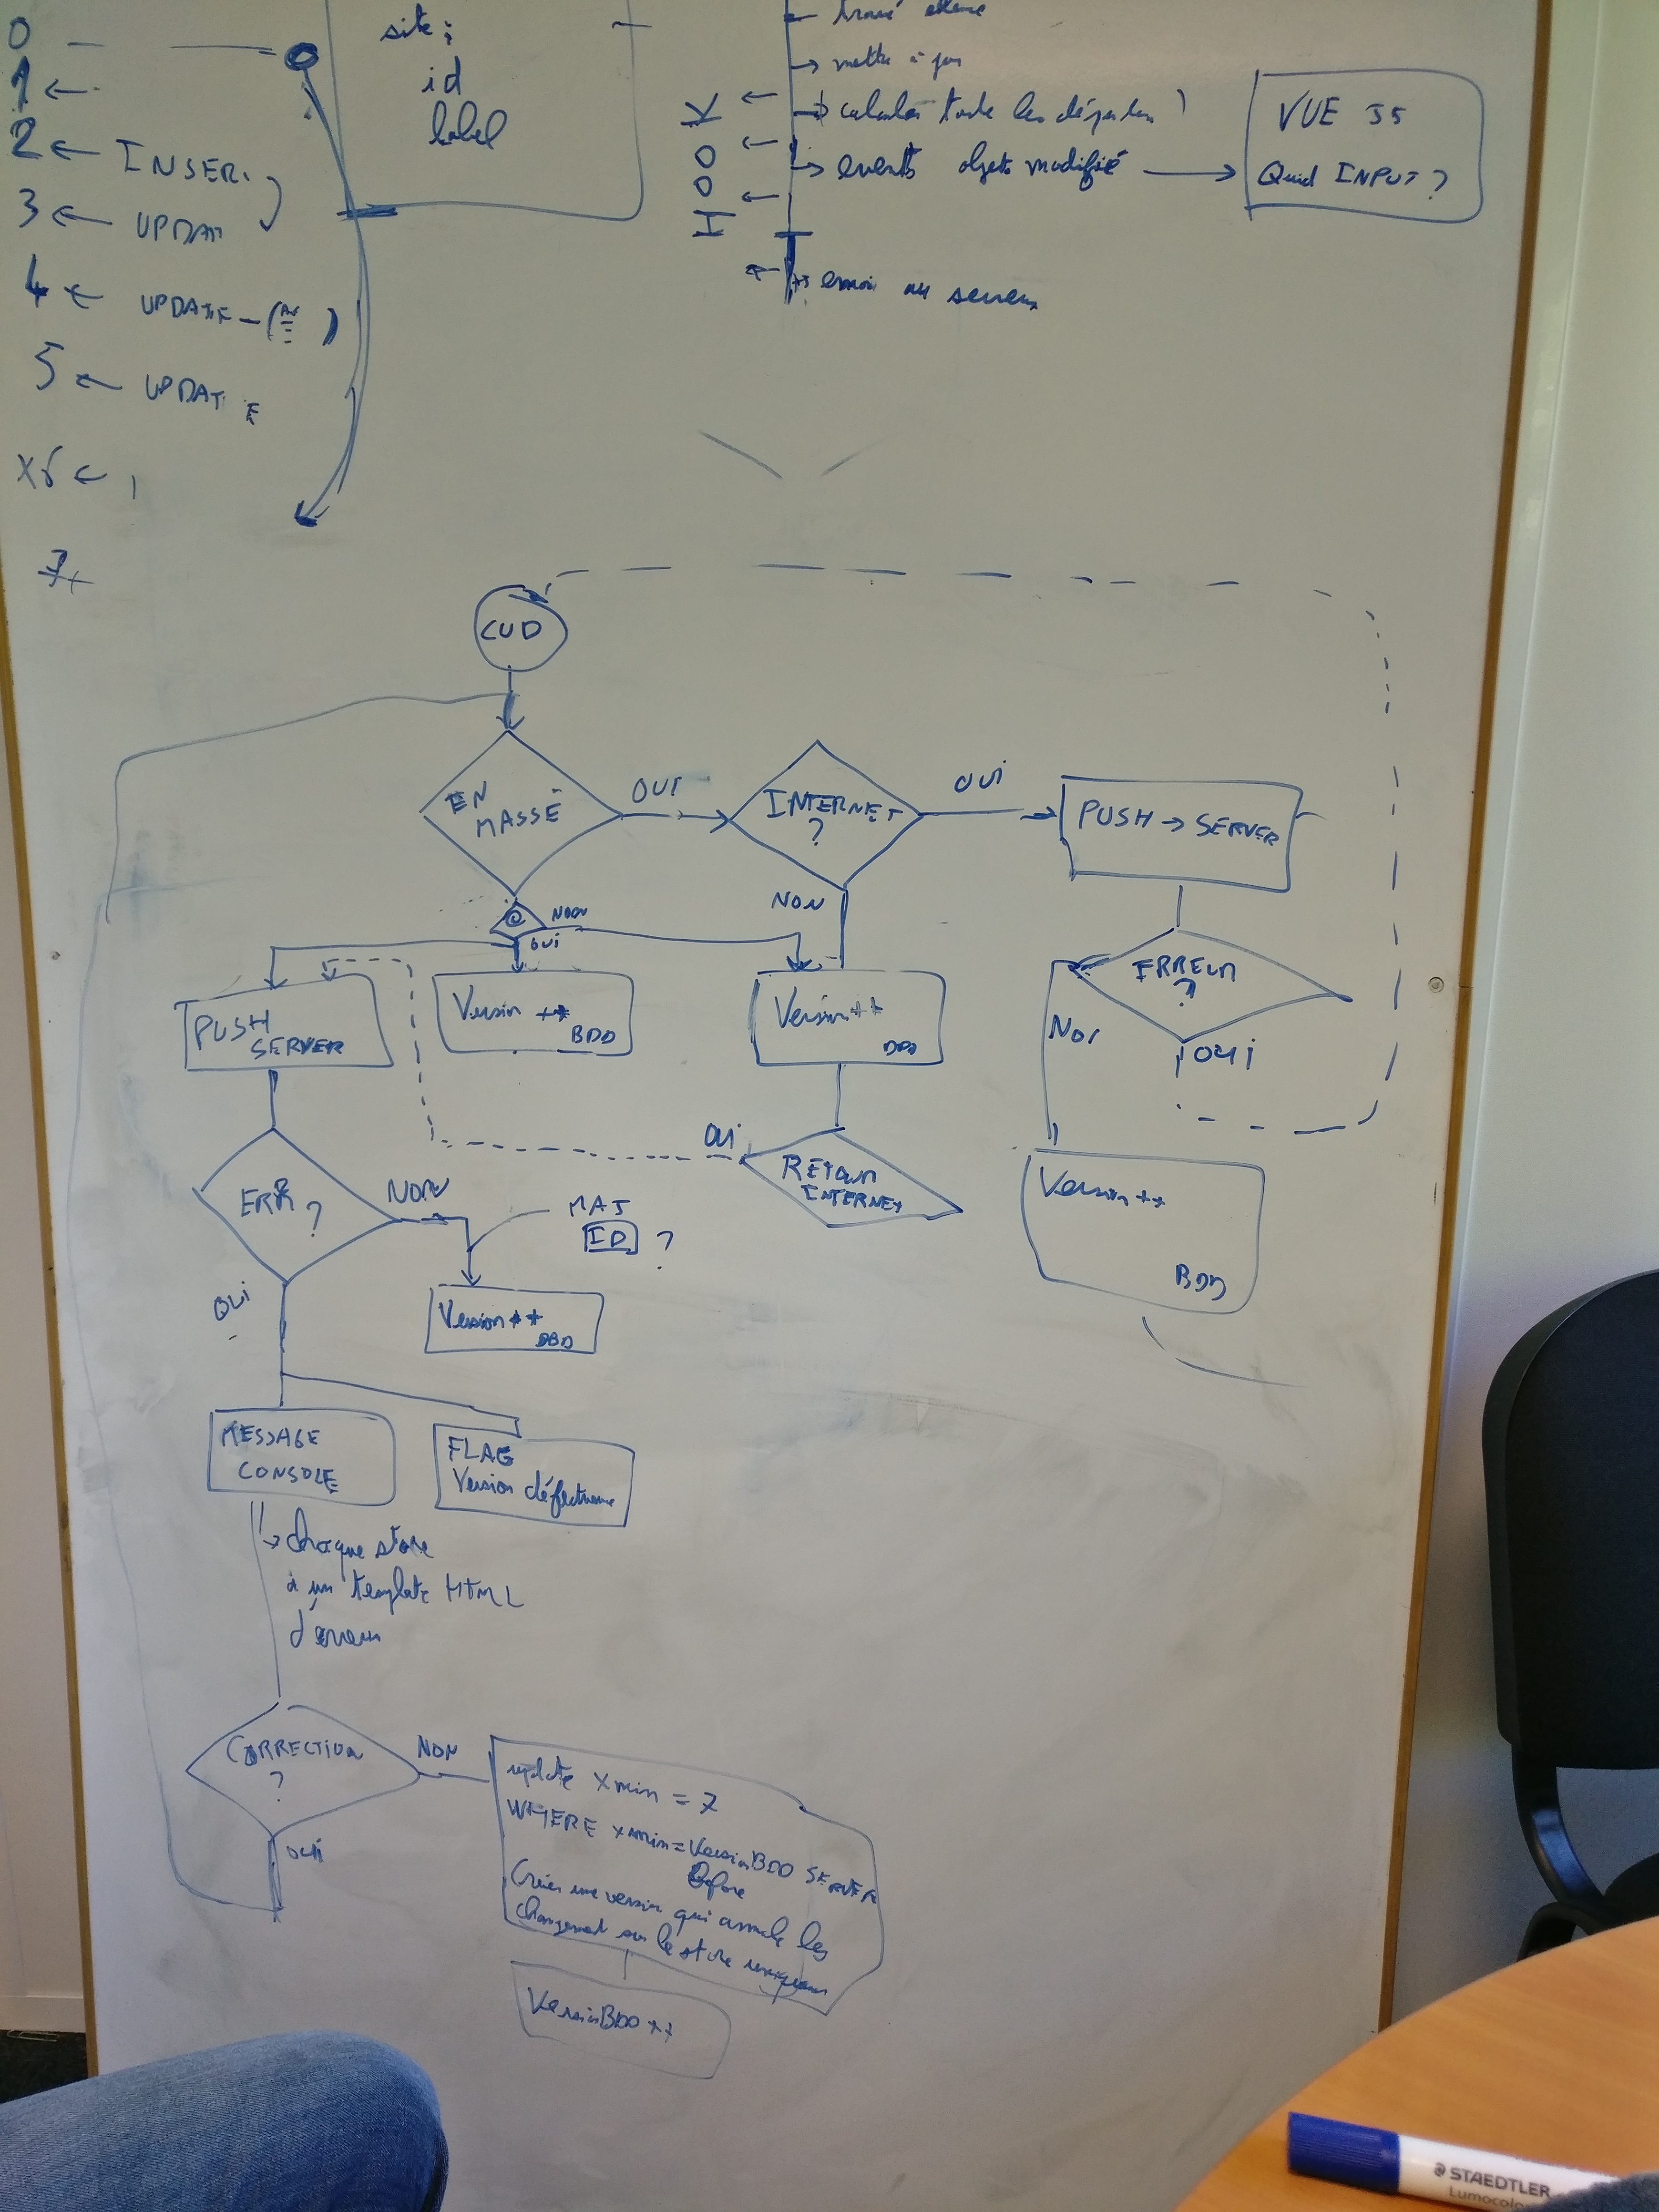 0
1 ←
2 ← INSER
3 ← UPDAT
4 ← UPDATE – ( )
5 ← UPDATE
x6 ←
7
site :
id
label
HOOK
→ mettre à jour
→ calculer toute les
→ events objets modifié →
→ envoi au serveur
VUE JS
Quid INPUT ?
CUD
EN
MASSE
OUI
INTERNET
?
OUI
PUSH → SERVER
NON
@ NON
OUI
PUSH
SERVER
Version ++
BDD
Version ++
BDD
ERREUR
?
NON
OUI
Version ++
BDD
OUI
RETOUR
INTERNET
ERR
?
NON
MAJ
ID ?
OUI
Version ++
BDD
MESSAGE
CONSOLE
FLAG
Version défectueuse
↳ chaque store
à un template HTML
d'erreur
CORRECTION
?
NON
OUI
update xmin = 7
WHERE xmin = Version BDD SERVER
Before
Créer une version qui annule les
changement sur le store uniquement
Version BDD ++
STAEDTLER
Lumocolo